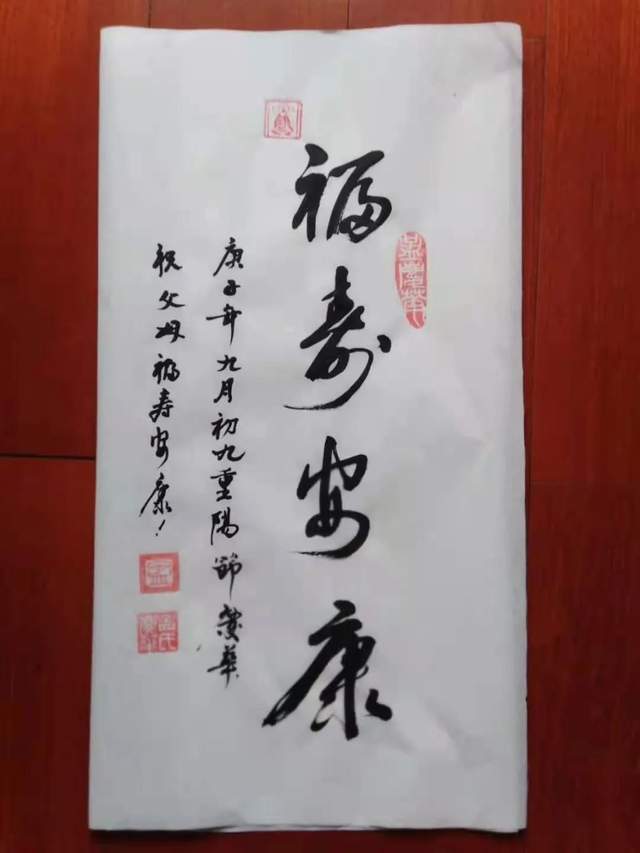 福寿安康
庚子年九月初九重陽節
祝父母福寿安康！